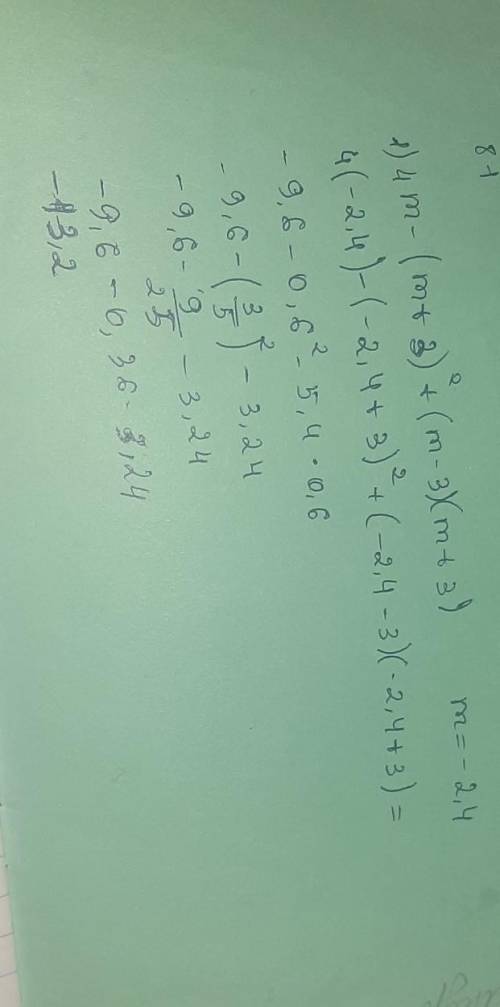 81
1) 4m - (m+3)² + (m-3)(m+3) m = -2,4
4(-2,4) - (-2,4+3)² + (-2,4-3)(-2,4+3) =
-9,6 - 0,6² - 5,4 · 0,6
-9,6 - (3/5)² - 3,24
-9,6 - 9/25 - 3,24
-9,6 - 0,36 - 3,24
-13,2